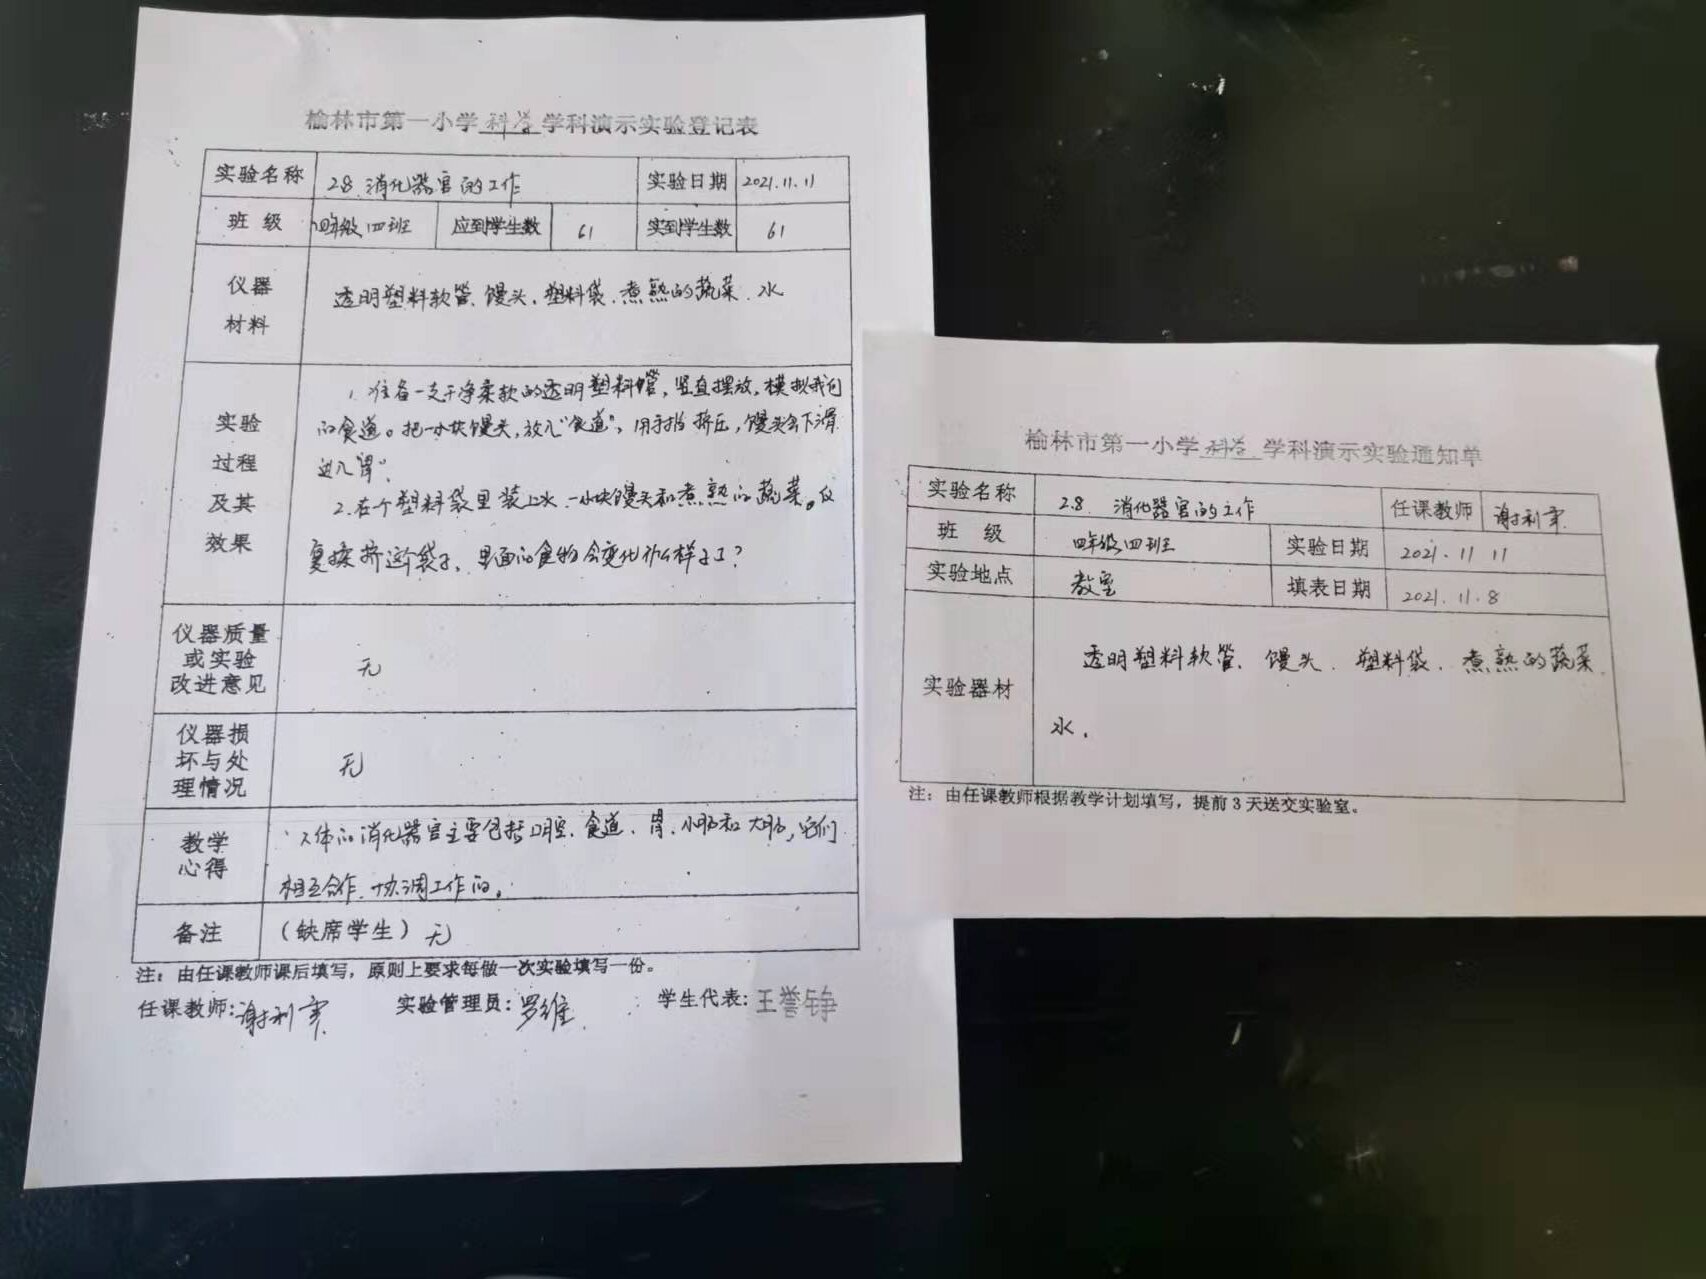 榆林市第一小学 科学 学科演示实验登记表
实验名称 2.8 消化器官的工作 实验日期 2021.11.11
班 级 四年级四班 应到学生数 61 实到学生数 61
仪器
材料
透明塑料软管、馒头、塑料袋、煮熟的蔬菜、水
实验
过程
及其
效果
1. 准备一支干净柔软的透明塑料管，竖直摆放，模拟我们
的食道。把一小块馒头，放入"食道"，用手指挤压，馒头会下滑
进入"胃"。
2. 在个塑料袋里装上水、一小块馒头和煮熟的蔬菜。反
复揉挤这个袋子，里面的食物会变化什么样子了？
仪器质量
或实验
改进意见
无
仪器损
坏与处
理情况
无
教学
心得
人体的消化器官主要包括口腔、食道、胃、小肠和大肠，它们
相互合作、协调工作的。
备注 （缺席学生）无
注：由任课教师课后填写，原则上要求每做一次实验填写一份。
任课教师：谢利 实验管理员：罗维 学生代表：王誉铮
榆林市第一小学 科学 学科演示实验通知单
实验名称 2.8 消化器官的工作 任课教师 谢利
班 级 四年级四班 实验日期 2021.11 11
实验地点 教室 填表日期 2021.11.8
实验器材
透明塑料软管、馒头、塑料袋、煮熟的蔬菜、
水.
注：由任课教师根据教学计划填写，提前3天送交实验室。